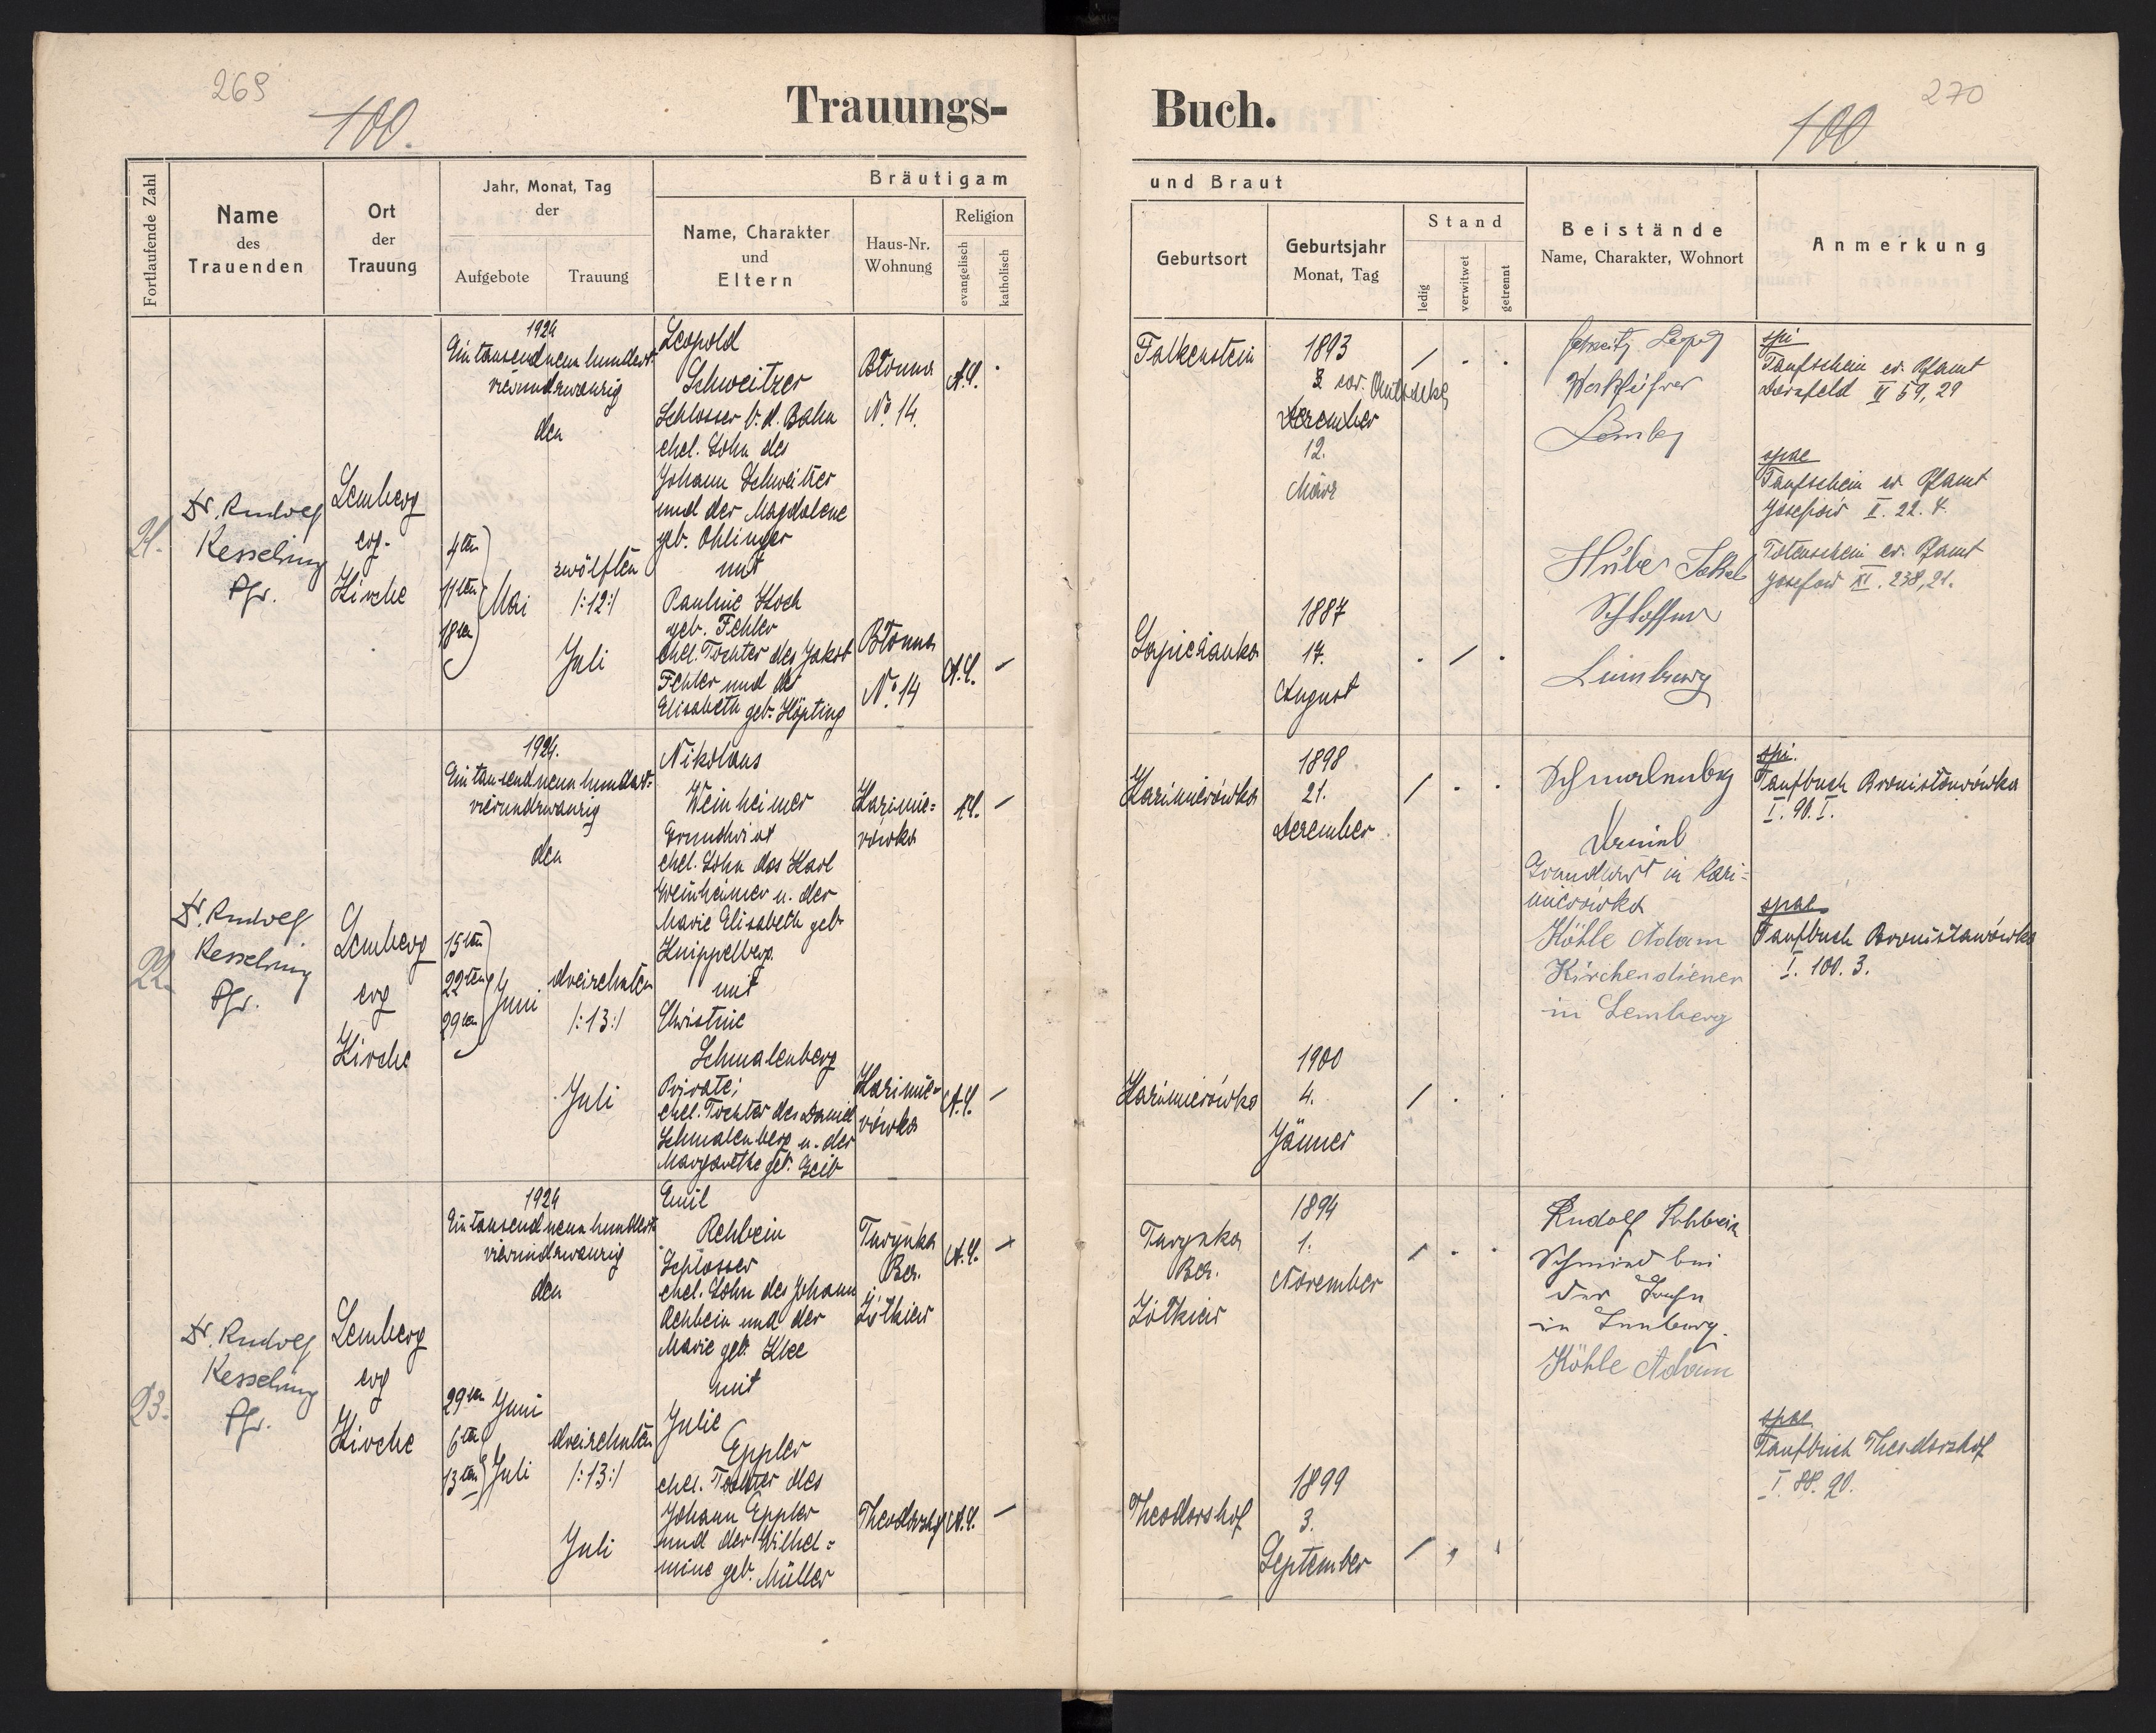 269
100.
Trauungs-
Fortlaufende Zahl
Name
des
Trauenden
Ort
der
Trauung
Jahr, Monat, Tag
der
Aufgebote
Trauung
Bräutigam
Name, Charakter
und
Eltern
Haus-Nr.
Wohnung
Religion
evangelisch
katholisch
21.
Dr. Rudolf
Kesselring
Pfr.
Lemberg
evg.
Kirche
1924
Eintausendneunhundert-
vierundzwanzig
den
4ten
11ten
18ten
Mai
zwölften
/:12:/
Juli
Leopold
Schweitzer
Schlosser b. d. Bahn
ehel. Sohn des
Johann Schweitzer
und der Magdalene
geb. Ohlinger
mit
Pauline Koch
geb. Fehler
ehel. Tochter des Jakob
Fehler und der
Elisabeth geb. Höpting
Błonna
No 14.
A.C.
Błonna
No 14
A.C.
22.
Dr. Rudolf
Kesselring
Pfr.
Lemberg
evg
Kirche
1924.
Eintausendneunhundert-
vierundzwanzig
den
15ten
22ten
29ten
Juni
dreizehnten
/:13:/
Juli
Nikolaus
Weinheimer
Grundwirt
ehel. Sohn des Karl
Weinheimer u. der
Marie Elisabeth geb.
Knippelberg
mit
Christine
Schmalenberg
Private;
ehel. Tochter des Daniel
Schmalenberg u. der
Margarethe geb. Geib
Kazimie=
rówka
A.C.
Kazimie=
rówka
A.C.
23.
Dr. Rudolf
Kesselring
Pfr.
Lemberg
evg
Kirche
1924
Eintausendneunhundert-
vierundzwanzig
den
29ten Juni
6ten
13ten
Juli
dreizehnten
/:13:/
Juli
Emil
Rehbein
Schlosser
ehel. Sohn des Johann
Rehbein und der
Marie geb. Klee
mit
Julie
Eppler
ehel. Tochter des
Johann Eppler
und der Wilhel=
mine geb. Müller
Turynka
Bez.
Żółkiew
A.C.
Theodorshof
A.C.
270
100
Buch.
und Braut
Geburtsort
Geburtsjahr
Monat, Tag
Stand
ledig
verwitwet
getrennt
Beistände
Name, Charakter, Wohnort
Anmerkung
Falkenstein
1893
Dezember
12.
März
Leopold
Werkführer
Lemberg
spi
Taufschein ev. Pfamt
Dornfeld II 59, 29
spae
Taufschein ev. Pfamt
Josefow II. 22. 4.
Totenschein ev. Pfamt
Josefow XI. 238, 21.
1887
17.
August
Huber Jakob
Schlosser
Lemberg
Kazimierówka
1898
21.
Dezember
Schmalenberg
Daniel
Grundwirt in Kazi=
mierówka
Köhle Adam
Kirchendiener
in Lemberg
spi.
Taufbuch Bronisławówka
I. 90. I.
spae
Taufbuch Bronisławówka
I. 100. 3.
Kazimierówka
1900
4.
Jänner
Turynka
Bez.
Żółkiew
1894
1.
November
Rudolf Rehbein
Schmied bei
der Bahn
in Lemberg.
Köhle Adam
Theodorshof
1899
3.
September
spae
Taufbuch Theodorshof
I. 88. 20.